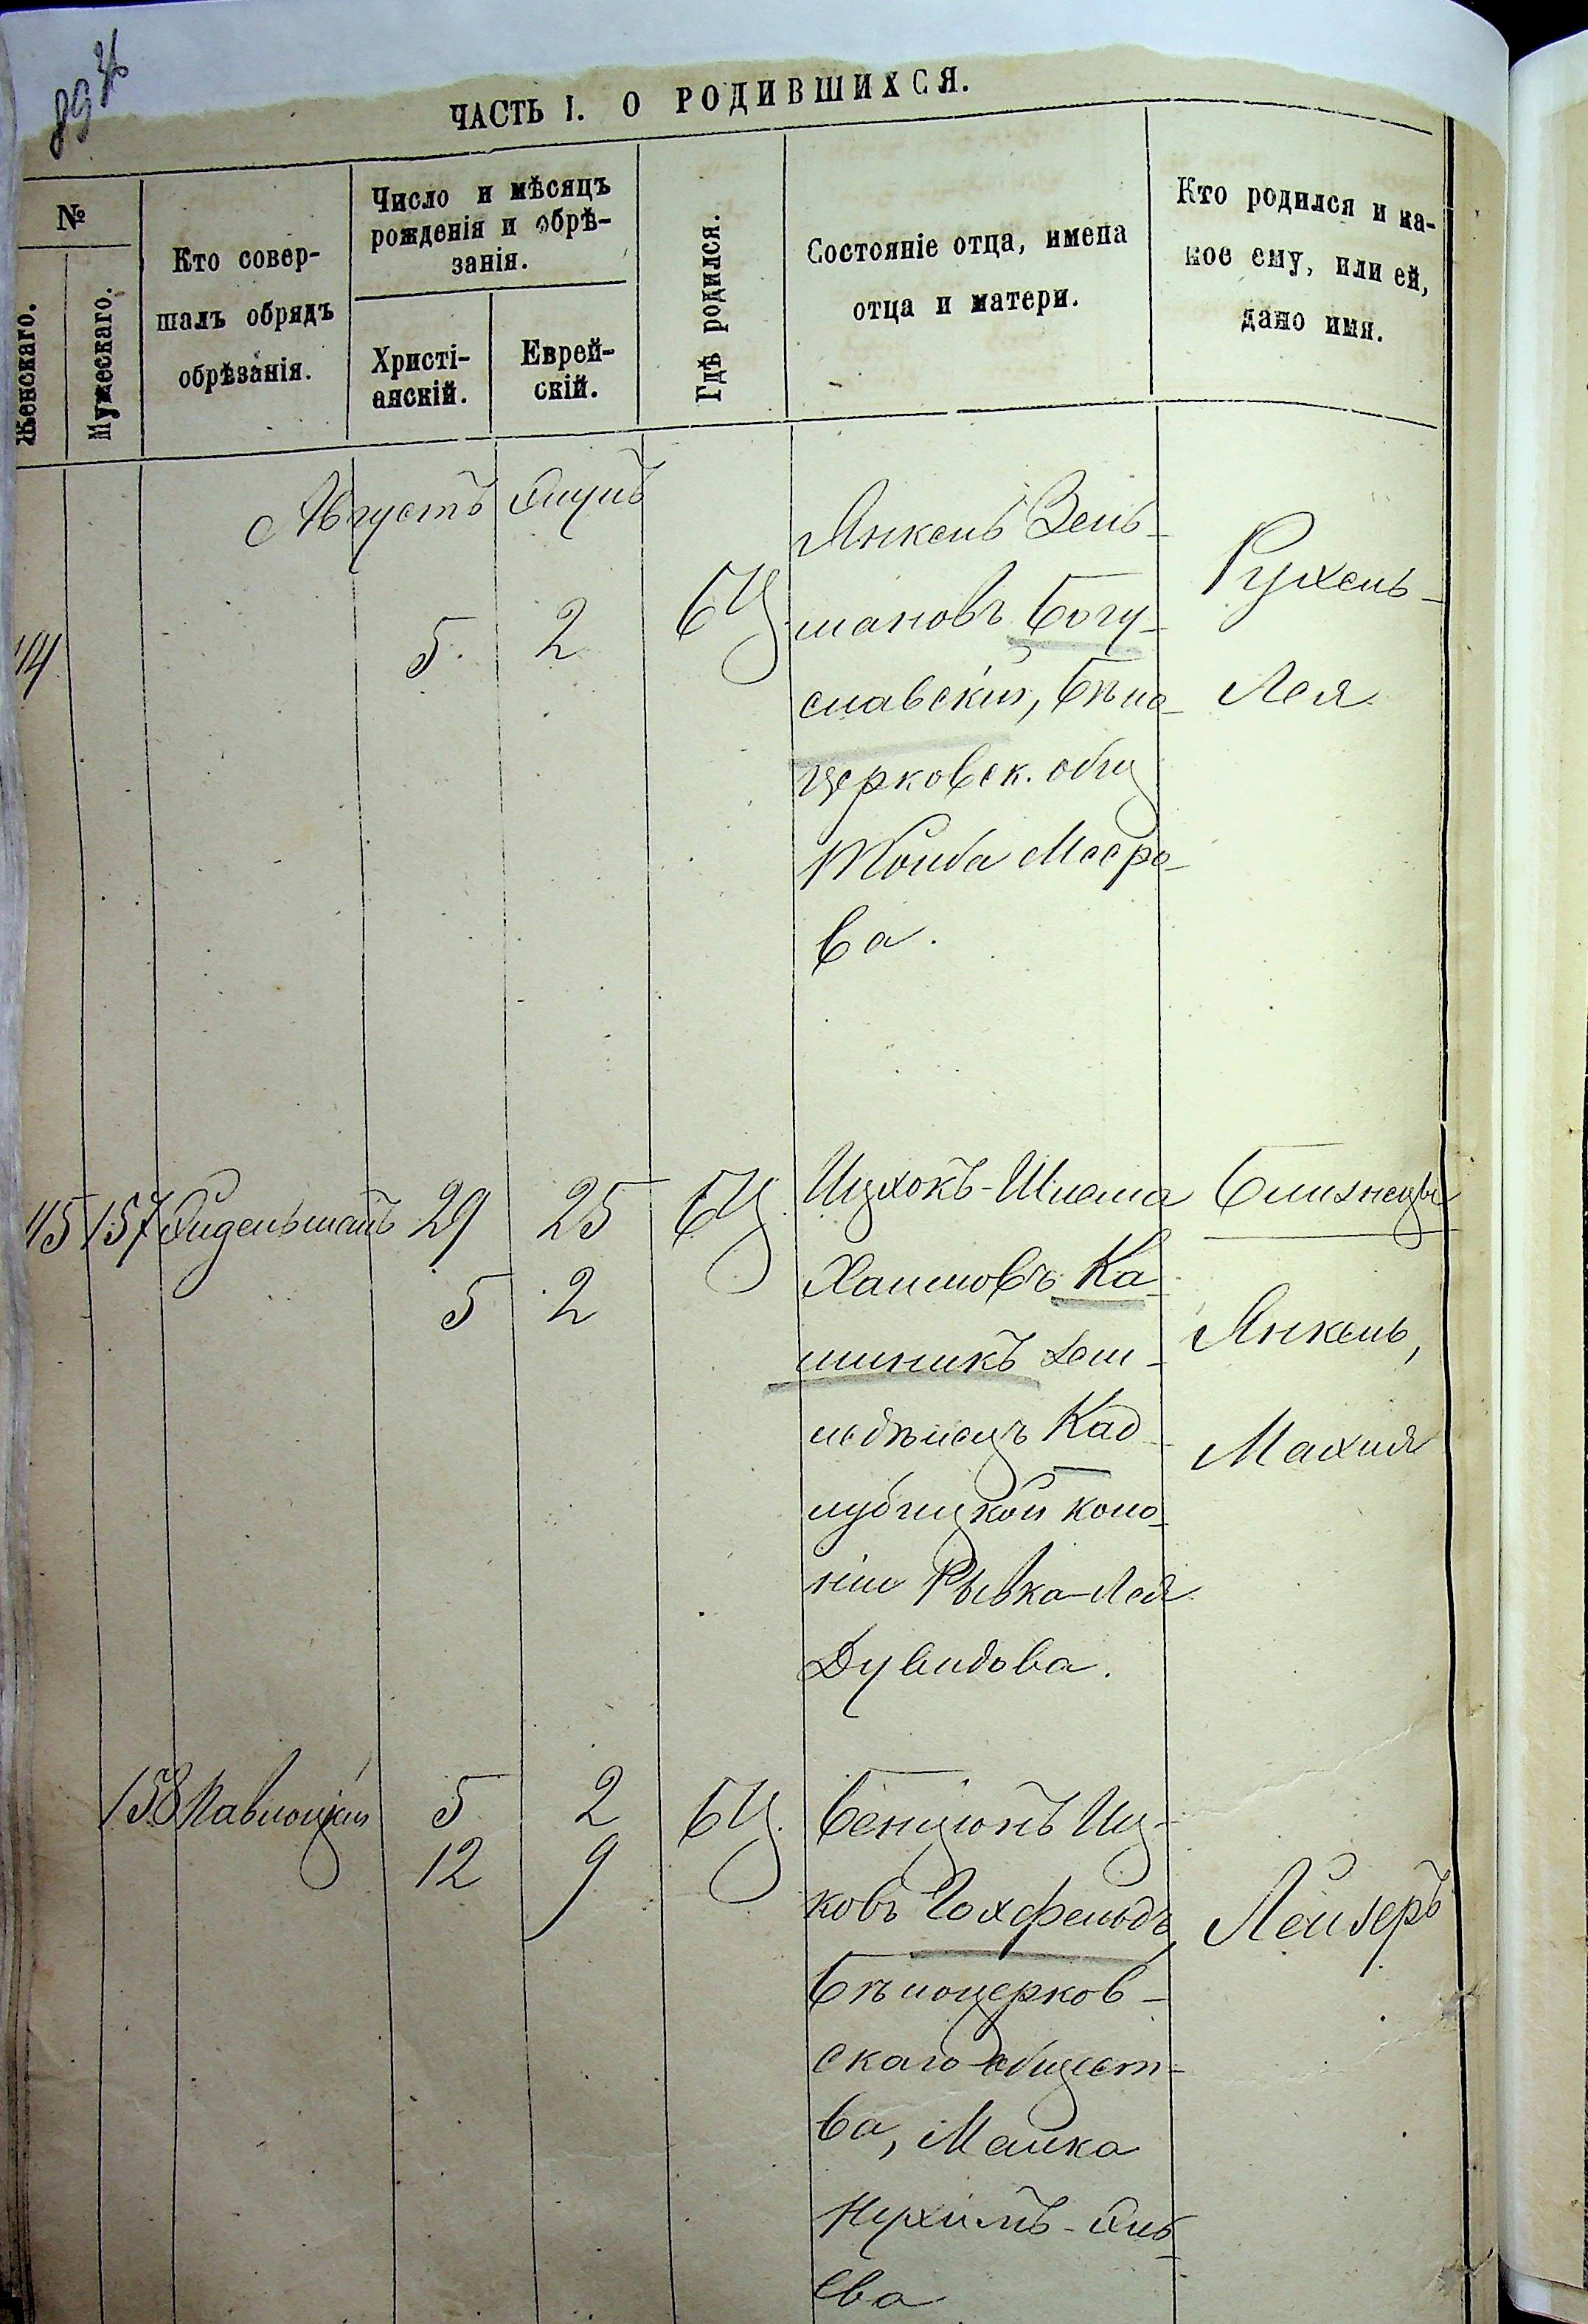 ЧАСТЬ I. О РОДИВШИХСЯ.
№
Женскаго.
Мужескаго.
Кто совер-
шалъ обрядъ
обрѣзанія.
Число и мѣсяцъ
рожденія и обрѣ-
занія.
Христі-
анскій.
Еврей-
скій.
Гдѣ родился.
Состояніе отца, имена
отца и матери.
Кто родился и ка-
кое ему, или ей,
дано имя.
Августъ
5
2
БЦ.
Янкель Зель-
мановъ Богу-
славскій, Бѣло-
церковск. общ
Тойба Мееро-
ва.
Рухель-
Лея
157
29 25 БЦ.
5 2
Ицхокъ-Шлема
Хаимовъ Ка-
шникъ Зем-
ледѣлецъ Кад-
лубицкой коло-
ніи Рывка-Лея
Дувидова.
Близнецы
Янкель,
Малия
158 Павлоцкій 5 2 БЦ.
12 9
Бенціонъ Иц-
ковъ Гохфельдъ,
Бѣлоцерков-
скаго общест-
ва, Малка
Нухимъ-
ева
Лейзеръ